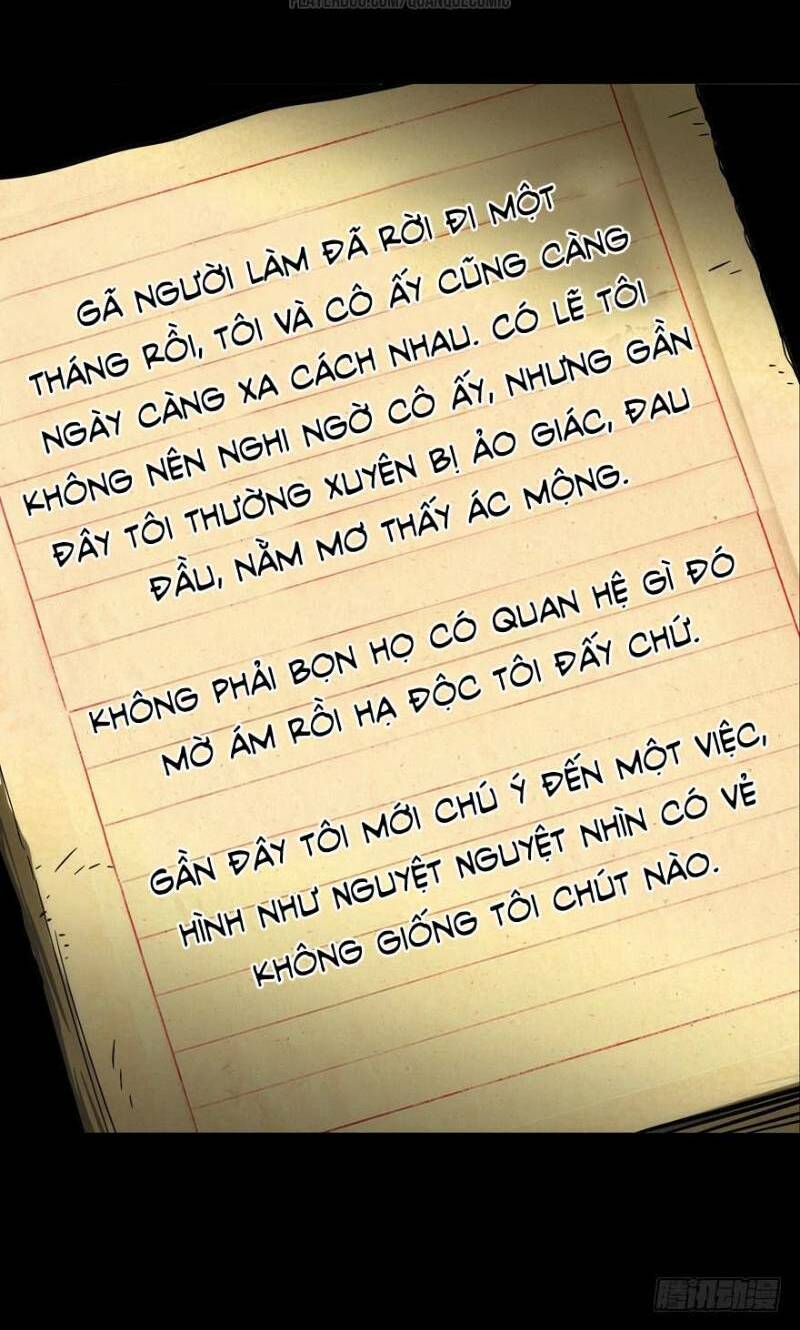 GÃ NGƯỜI LÀM ĐÃ RỜI ĐI MỘT
THÁNG RỒI, TÔI VÀ CÔ ẤY CŨNG CÀNG
NGÀY CÀNG XA CÁCH NHAU. CÓ LẼ TÔI
KHÔNG NÊN NGHI NGỜ CÔ ẤY, NHƯNG GẦN
ĐÂY TÔI THƯỜNG XUYÊN BỊ ẢO GIÁC, ĐAU
ĐẦU, NẰM MƠ THẤY ÁC MỘNG.
KHÔNG PHẢI BỌN HỌ CÓ QUAN HỆ GÌ ĐÓ
MỜ ÁM RỒI HẠ ĐỘC TÔI ĐẤY CHỨ.
GẦN ĐÂY TÔI MỚI CHÚ Ý ĐẾN MỘT VIỆC,
HÌNH NHƯ NGUYỆT NGUYỆT NHÌN CÓ VẺ
KHÔNG GIỐNG TÔI CHÚT NÀO.
腾讯动漫